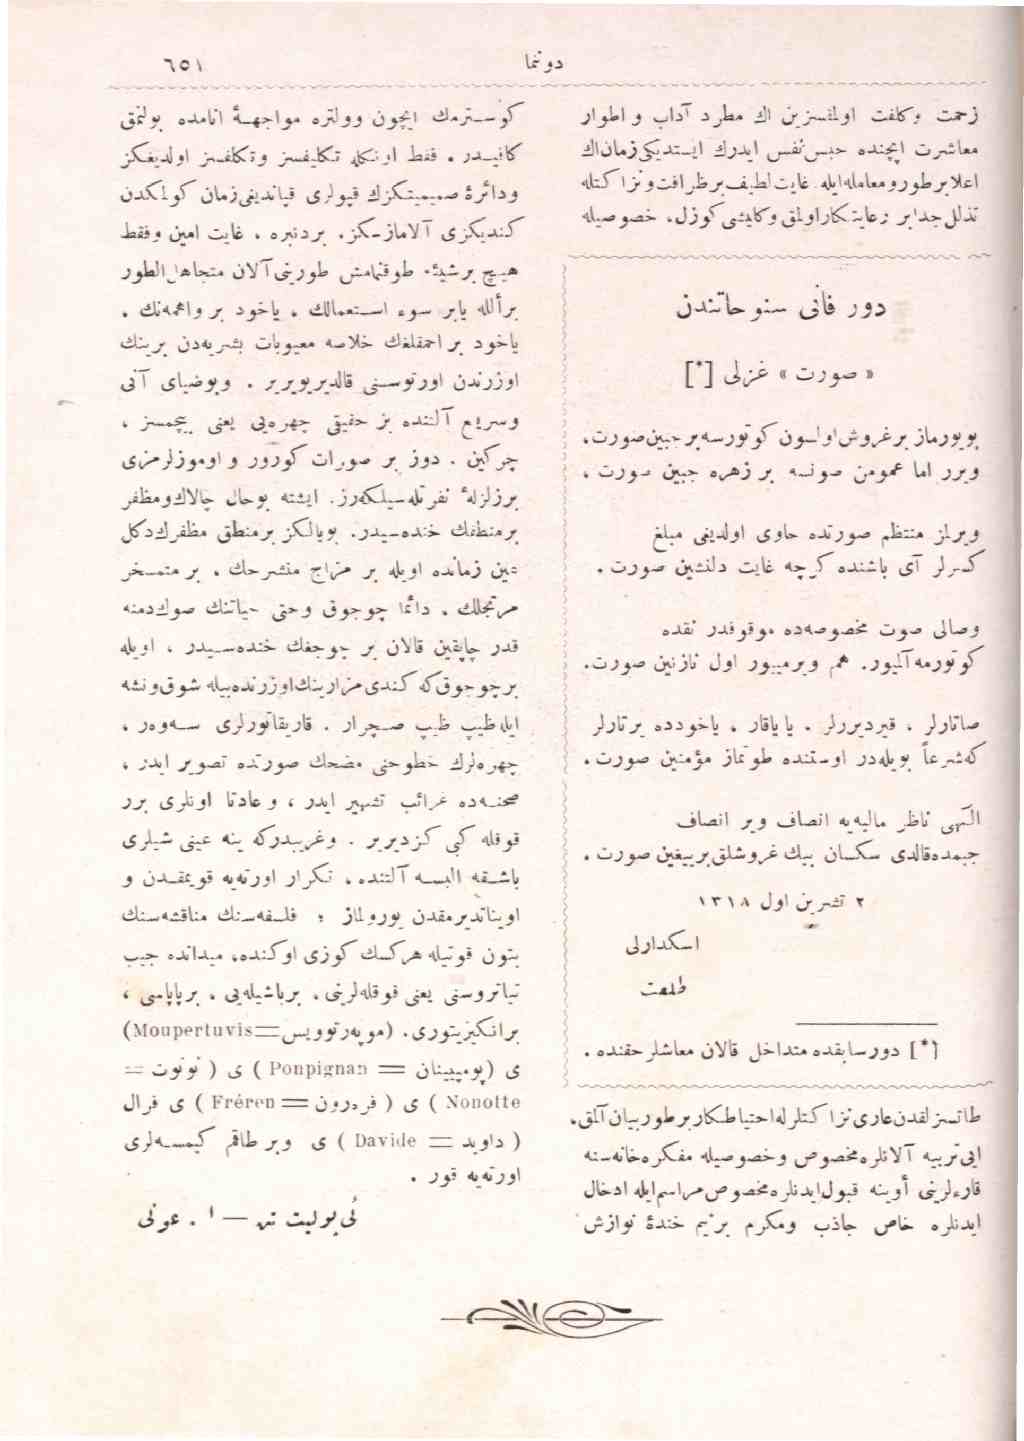 دونما
٦٥١
زحمت وكلفت اولمقسزين اك مطرد آداب و اطوار
معاشرت ايچنده حبس نفس ايدرك ايستديكى زمان اك
اعلا بر طور و معامله ايله غايت لطيف بر ظرافت و نزاكتله
تذلل جدا بر رعايتكار اولمق وكايشى كوزل، خصوصيله
دور فانى سنوحاتندن
« صورت » غزلى [*]
بويورماز بر غروش اولسون كوتورسه بر جبين صورت،
ويرر اما عمومن صونسه بر زهره جبين صورت ،
ويرلمز منتظم صورتده حاوى اولديغى مبلغ
كسرلر آى باشنده كرچه غايت دلنشين صورت .
وصالى صوت مخصوصه ده موقوفدر نقده
كوتورمه آلميور. هم ويرميور اول نازنين صورت.
صاتارلر ، قيرديررلر . يا ياقار ، ياخودده يرتارلر
كه شرعاً بويله در اوستنده طوتماز مؤمنين صورت .
الٓهى ناظر ماليه يه انصاف وير انصاف
جبمده قالدى سكسان بيك غروشلق بر ييغين صورت .
٢ تشرين اول ١٣١٨
اسكدارلى
طلعت
[*] دور سابقده متداخل قالان معاشلر حقنده .
طاتسزلقدن عارى نزاكتلرله احتياطكار بر طور بيان آلمق،
ايى تربيه آلانلره مخصوص وخصوصيله مفكره خانه سنه
قارءلرينى أوينه قبول ايدنلره مخصوص مراسم ايله ادخال
ايدنلره خاص جاذب ومكرم بر نيم خنده نوازش
كوسترمك ايچون وولتره مواجهۀ انامده بولنمق
كافيدر . فقط اونكله تكليفسز وتكلفسز اولديغكز
ودائرۀ صميميتكزك قپولرى قپانديغى زمان كولمكدن
كنديكزى آلامازسكز. بردنبره ، غايت امين وفقط
هيچ بر شيئه طوقنمامش طورينى آلان متجاهل الطور
بر أللله يا بر سوء استعمالك ، ياخود بر واهمه نك .
ياخود بر احمقلغك خلاصه معيوبات بشريه دن برينك
اوزرندن اورتوسنى قالديريويرير . وبوضياى آنى
وسريع آلتنده بز حقيقى چهره يى يعنى بيچمسز ،
چركين . دوز بر صورات كورور و اوموزلرمزى
بر زلزلۀ نفرتله سيلكه رز. ايشته بوحال چالاك و مظفر
بر منطقك خنده سيدر. بو يالكز بر منطق مظفرك دكل
عين زمانده اويله بر مزاج منشرحك ، بر متمسخر
مرتجلك ، دائما چوجوق وحتى حياتنك صوك دمنه
قدر چاپقين قالان بر چوجغك خنده سيدر ، اويله
بر چوجوق كه كندى مزارينك اوزرنده بيله شوق و نشئه
ايله ظيپ ظيپ صچرار . قاريقاتورلرى سه وه ر ،
چهره لرك خطوطنى مضحك صورتده تصوير ايدر ،
صحنه ده غرائب تشهير ايدر ، وعادتا اونلرى برر
قوقله كبى كزديرير . وغريبدركه ينه عينى شيلرى
باشقه البسه آلتنده ، تكرار اورته يه قويمقدن و
اويناتديرمقدن يورولماز ؛ فلسفه سنك مناقشه سنك
بتون قوتيله هركسك كوزى اوكنده، ميدانده جيب
تياتروسنى يعنى قوقله لرينى، بر باشيله يى ، بر پاپاسى ،
بر انكيزيتورى. (موپه رتوويس=Moupertuvis)
ى (پومپينيان = Ponpignan ) ى ( نونوت =
Nonotte ) ى ( فره رون= Fréren ) ى قرال
( داويد = Davide ) ى وير طاقم كيمسه لرى
اورته يه قور .
ئى پوليت تن — ا . عونى